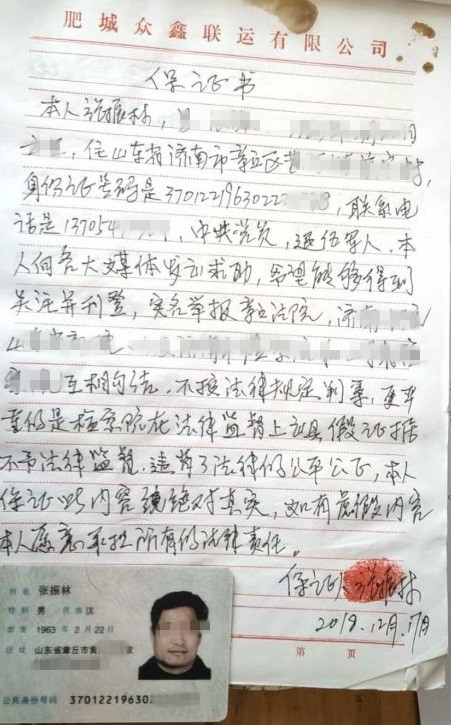 肥城众鑫联运有限公司
保证书
本人张振林,
住山东省济南市章丘区
身份证号码是3701221963022 8,联系电
话是137054 ,中共党员,退伍军人,本
人向各大媒体发出求助,希望能够得到
关注并刊登,实名举报章丘法院,济南
互相勾结,不按法律规定判案,更严
重的是检察院在法律监督上出具假证据
不予法律监督,违背了法律的公平公正,本人
保证此内容绝对真实,如有虚假内容
本人愿意承担所有的法律责任。
保证人:张振林
2019.12月.17月
第 页
姓名 张振林
性别 男 民族 汉
出生 1963 年 2 月 22 日
住址 山东省章丘市黄 汉
公民身份号码 37012219630